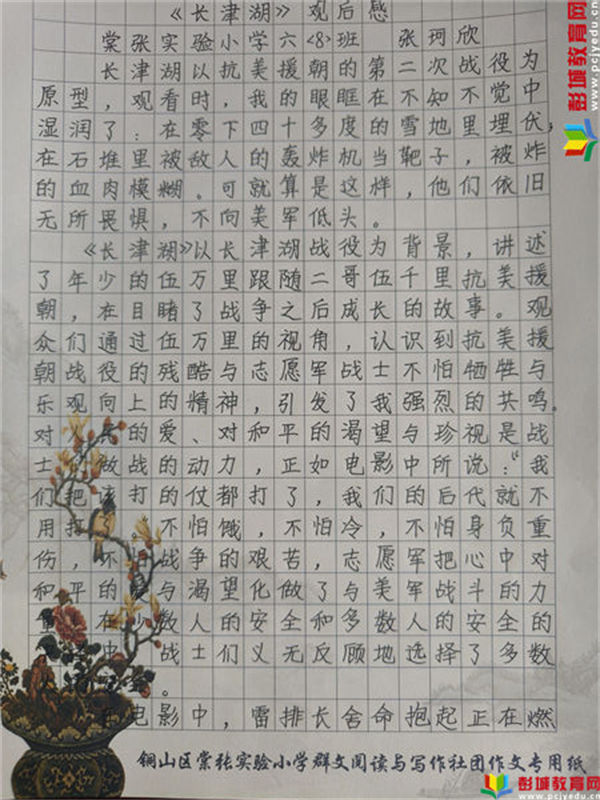 《长津湖》观后感
棠张实验小学六<8>班 张珂欣
长津湖以抗美援朝的第二次战役为
原型，观看时，我的眼眶在不知不觉中
湿润了：在零下四十多度的雪地里埋伏，
在石堆里被敌人的轰炸机当靶子，被炸
的血肉模糊。可就算是这样，他们依旧
无所畏惧，不向美军低头。
《长津湖》以长津湖战役为背景，讲述
了年少的伍万里跟随二哥伍千里抗美援
朝，在目睹了战争之后成长的故事。观
众们通过伍万里的视角，认识到抗美援
朝战役的残酷与志愿军战士不怕牺牲与
乐观向上的精神，引发了我强烈的共鸣。
对 的爱、对和平的渴望与珍视是战
士 做战的动力，正如电影中所说：“我
们把该打的仗都打了，我们的后代就不
用打 不怕饿，不怕冷，不怕身负重
伤，不 战争的艰苦，志愿军把心中对
和平的 与渴望化做了与美军战斗的力
在少数人的安全和多数人的安全的
中 战士们义无反顾地选择了多数
。
电影中，雷排长舍命抱起正在燃
铜山区棠张实验小学群文阅读与写作社团作文专用纸
彭城教育网
www.pcjyedu.cn
彭城教育网
www.pcjyedu.cn